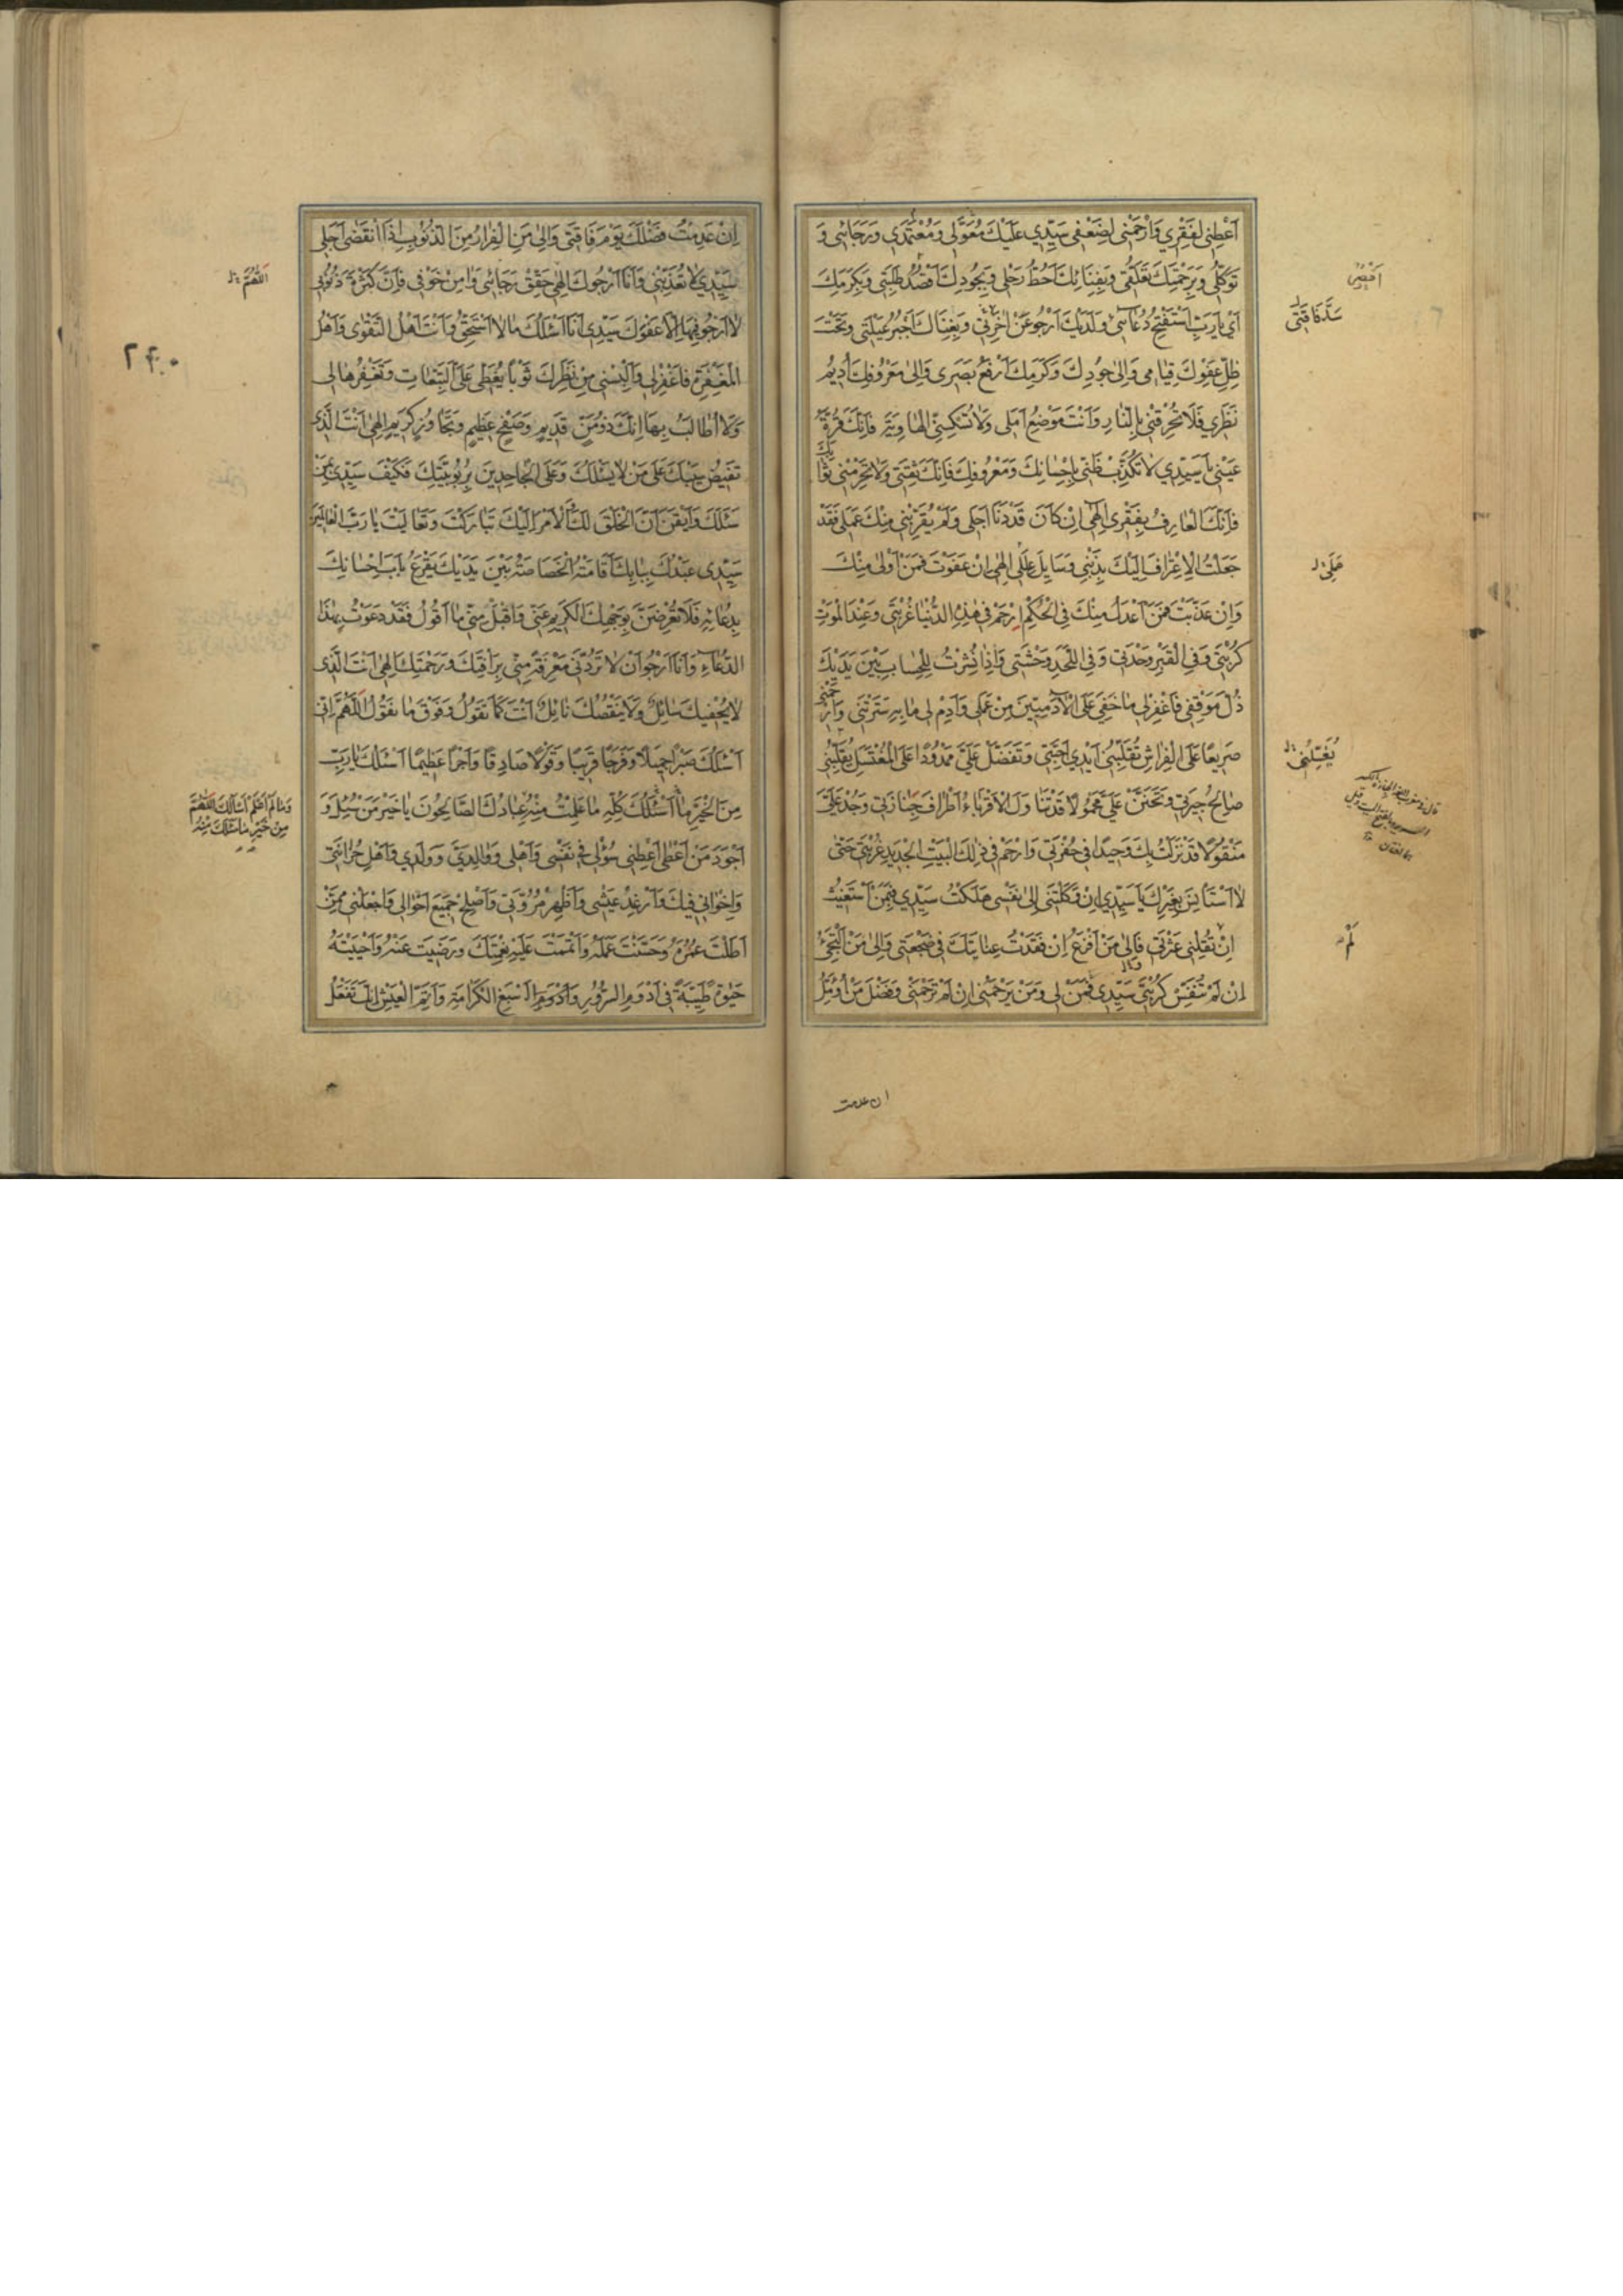 اَعْطِنى لِفَقْرِي وَارْحَمْنى لِضَعْفى سَيِّدِي عَلَيْكَ مُعَوَّلى وَمُعْتَمَدِي وَرَجَائى وَ
تَوَكُّلى وَبِرَحْمَتِكَ تَعَلُّقى وَبِفِنَائِكَ اَحُطُّ رَحْلى وَبِجُودِكَ اَقْصُدُ طَلِبَتى وَبِكَرَمِكَ
اَيْ يَا رَبِّ اَسْتَفْتِحُ دُعَائى وَلَدَيْكَ اَرْجُو وَبِغِنَاكَ اَجْبُرُ عَيْلَتى وَتَحْتَ
ظِلِّ عَفْوِكَ قِيَامى وَاِلى جُودِكَ وَكَرَمِكَ اَرْفَعُ بَصَرى وَاِلى مَعْرُوفِكَ اُدِيمُ
نَظَرِي فَلَا تُحْرِقْنى بِالنَّارِ وَاَنْتَ مَوْضِعُ اَمَلى وَلَا تُسْكِنِّى الْهَاوِيَةَ فَاِنَّكَ قُرَّةُ
عَيْنى يَا سَيِّدِي لَا تُكَذِّبْ ظَنّى بِاِحْسَانِكَ وَمَعْرُوفِكَ فَاِنَّكَ ثِقَتى وَلَا تَحْرِمْنى ثَوَابَكَ
فَاِنَّكَ الْعَارِفُ بِفَقْرى اِلهى اِنْ كَانَ قَدْ دَنَا اَجَلى وَلَمْ يُقَرِّبْنى مِنْكَ عَمَلى فَقَدْ
جَعَلْتُ الْاِعْتِرَافَ اِلَيْكَ بِذَنْبى وَسَايِلَ عِلَلى اِلهى اِنْ عَفَوْتَ فَمَنْ اَوْلى مِنْكَ
وَاِنْ عَذَّبْتَ فَمَنْ اَعْدَلُ مِنْكَ فِى الْحُكْمِ اِرْحَمْ فى هذِهِ الدُّنْيَا غُرْبَتى وَعِنْدَ الْمَوْتِ
كُرْبَتى وَفِى الْقَبْرِ وَحْدَتى وَفِى اللَّحْدِ وَحْشَتى وَاِذَا نُشِرْتُ لِلْحِسَابِ بَيْنَ يَدَيْكَ
ذُلَّ مَوْقِفى فَاغْفِرْلى مَا خَفِيَ عَلَى الْآدَمِيّينَ مِنْ عَمَلى وَاَدِمْ لى مَا بِهِ سَتَرْتَنى وَارْحَمْنى
صَرِيعًا عَلَى الْفِرَاشِ تُقَلِّبُنى اَيْدِي اَحِبَّتى وَتَفَضَّلْ عَلَيَّ مَمْدُودًا عَلَى الْمُغْتَسَلِ يُقَلِّبُنى
صَالِحُ جِيرَتى وَتَحَنَّنْ عَلَيَّ مَحْمُولًا قَدْ تَنَاوَلَ الْاَقْرِبَاءُ اَطْرَافَ جَنَازَتى وَجُدْ عَلَيَّ
مَنْقُولًا قَدْ نَزَلْتُ بِكَ وَحِيدًا فى حُفْرَتى وَارْحَمْ فى ذلِكَ الْبَيْتِ الْجَدِيدِ غُرْبَتى حَتّى
لَا اَسْتَأْنِسَ بِغَيْرِكَ يَا سَيِّدِي اِنْ وَكَلْتَنى اِلى نَفْسى هَلَكْتُ سَيِّدِي فَبِمَنْ اَسْتَغِيثُ
اِنْ تُقِلْنى عَثْرَتى فَاِلى مَنْ اَفْزَعُ اِنْ فَقَدْتُ عِنَايَتَكَ فى ضَجْعَتى وَاِلى مَنْ اَلْتَجِئُ
اِنْ لَمْ تُنَفِّسْ كُرْبَتى سَيِّدِي فَمَنْ لى وَمَنْ يَرْحَمُنى اِنْ لَمْ تَرْحَمْنى وَفَضْلَ مَنْ اُؤَمِّلُ
سَدَّ فَاقَتى
يُغَسِّلُنى
لَمْ
ان عدمت
اِنْ عَدِمْتُ فَضْلَكَ يَوْمَ فَاقَتى وَاِلى مَنِ الْفِرَارُ مِنَ الذُّنُوبِ اِذَا انْقَضى اَجَلى
سَيِّدِي لَا تُعَذِّبْنى وَاَنَا اَرْجُوكَ اِلهى حَقِّقْ رَجَائى وَامِنْ خَوْفى فَاِنَّ كَثْرَةَ ذُنُوبى
لَا اَرْجُو فِيهَا اِلَّا عَفْوَكَ سَيِّدِى اَنَا اَسْئَلُكَ مَا لَا اَسْتَحِقُّ وَاَنْتَ اَهْلُ التَّقْوى وَاَهْلُ
الْمَغْفِرَةِ فَاغْفِرْلى وَاَلْبِسْنى مِنْ نَظَرِكَ ثَوْبًا يُغَطّى عَلَيَّ التَّبِعَاتِ وَتَغْفِرُهَا لى
وَلَا اُطَالَبُ بِهَا اِنَّكَ ذُو مَنٍّ قَدِيمٍ وَصَفْحٍ عَظِيمٍ وَتَجَاوُزٍ كَرِيمٍ اِلهى اَنْتَ الَّذى
تَفيضُ سَيْبَكَ عَلى مَنْ لَا يَسْئَلُكَ وَعَلَى الْجَاحِدِينَ بِرُبُوبِيَّتِكَ فَكَيْفَ سَيِّدِى بِمَنْ
سَئَلَكَ وَاَيْقَنَ اَنَّ الْخَلْقَ لَكَ وَالْاَمْرَ اِلَيْكَ تَبَارَكْتَ وَتَعَالَيْتَ يَا رَبَّ الْعَالَمِينَ
سَيِّدِى عَبْدُكَ بِبَابِكَ اَقَامَتْهُ الْخَصَاصَةُ بَيْنَ يَدَيْكَ يَقْرَعُ بَابَ اِحْسَانِكَ
بِدُعَائِهِ فَلَا تُعْرِضْ بِوَجْهِكَ الْكَرِيمِ عَنّى وَاقْبَلْ مِنّى مَا اَقُولُ فَقَدْ دَعَوْتُ بِهذَا
الدُّعَاءِ وَاَنَا اَرْجُو اَنْ لَا تَرُدَّنى مَعْرِفَةً مِنّى بِرَأْفَتِكَ وَرَحْمَتِكَ اِلهى اَنْتَ الَّذى
لَا يُحْفيكَ سَائِلٌ وَلَا يَنْقُصُكَ نَائِلٌ اَنْتَ كَمَا تَقُولُ وَفَوْقَ مَا نَقُولُ اَللّهُمَّ اِنّى
اَسْئَلُكَ صَبْرًا جَمِيلًا وَفَرَجًا قَرِيبًا وَقَوْلًا صَادِقًا وَاَجْرًا عَظِيمًا اَسْئَلُكَ يَا رَبِّ
مِنَ الْخَيْرِ مِمَّا اَسْئَلُكَ كُلِّهِ مَا عَلِمْتُ مِنْهُ عِبَادُكَ الصَّالِحُونَ يَا خَيْرَ مَنْ سُئِلَ وَ
اَجْوَدَ مَنْ اَعْطى اَعْطِنى سُؤْلى فى نَفْسى وَاَهْلى وَوَالِدَيَّ وَوَلَدِي وَاَهْلِ حُزَانَتى
وَاِخْوَانى فِيكَ وَاَرْغِدْ عَيْشى وَاَظْهِرْ مُرُوَّتى وَاَصْلِحْ جَمِيعَ اَحْوَالى وَاجْعَلْنى مِمَّنْ
اَطَلْتَ عُمْرَهُ وَحَسَّنْتَ عَمَلَهُ وَاَتْمَمْتَ عَلَيْهِ نِعْمَتَكَ وَرَضِيتَ عَنْهُ وَاَحْيَيْتَهُ
حَيوةً طَيِّبَةً فى اَدْوَمِ السُّرُورِ وَاَسْبَغِ الْكَرَامَةِ وَاَتَمِّ الْعَيْشِ اِنَّكَ تَفْعَلُ
اَللّهُمَّ
وَمَا لَمْ اَعْلَمْ اَسْأَلُكَ اللّهُمَّ
مِنْ خَيْرِ مَا سَئَلَكَ مِنْهُ